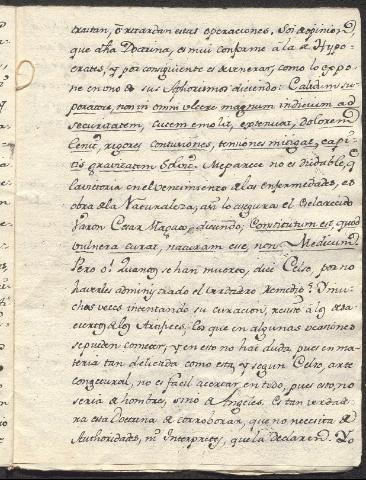 traitan, ò retardan estas operaciones, Soi de opinion,
que dha Doctrina, es mui conforme à la de Hypo-
crates, y por consiguiente es de venerar, como lo expo-
ne en uno de sus Aphorismos diciendo: Calidum su-
poratorie, non in omni ulcere magnum indicium ad
securitatem, cutem emolit, extenuat, dolorem
lenit, rigores contusiones, tensiones mitigat, capi-
tis gravitatem Solvit. Me parece no es dudable, q
la victoria en el vencimiento de las enfermedades, es
obra de la Naturaleza, asi lo asegura el Esclarecido
Varon Cesar Magno, diciendo; Constitutum est, quod
vulnera curat, naturam esse, non Medicum.
Pero ò! Quantos se han muerto, dice Celso, por no
haverles administrado el verdadero remedio? I mu-
chas veces intentando su curacion, resulto algo de sa
cierto, de los Arrojos, los que en algunas ocasiones
se pueden cometer, y en esto no hai duda, pues en ma-
teria tan delicada como esta, y segun Celso, arte
congetural, no es facil acertar en todo, pues esto, no
seria de hombres, sino de Angeles. Es tan verdade-
ra esta Doctrina de corroborar, que no necesita de
Authoridades, ni Interpretes, que la declaren. Yo